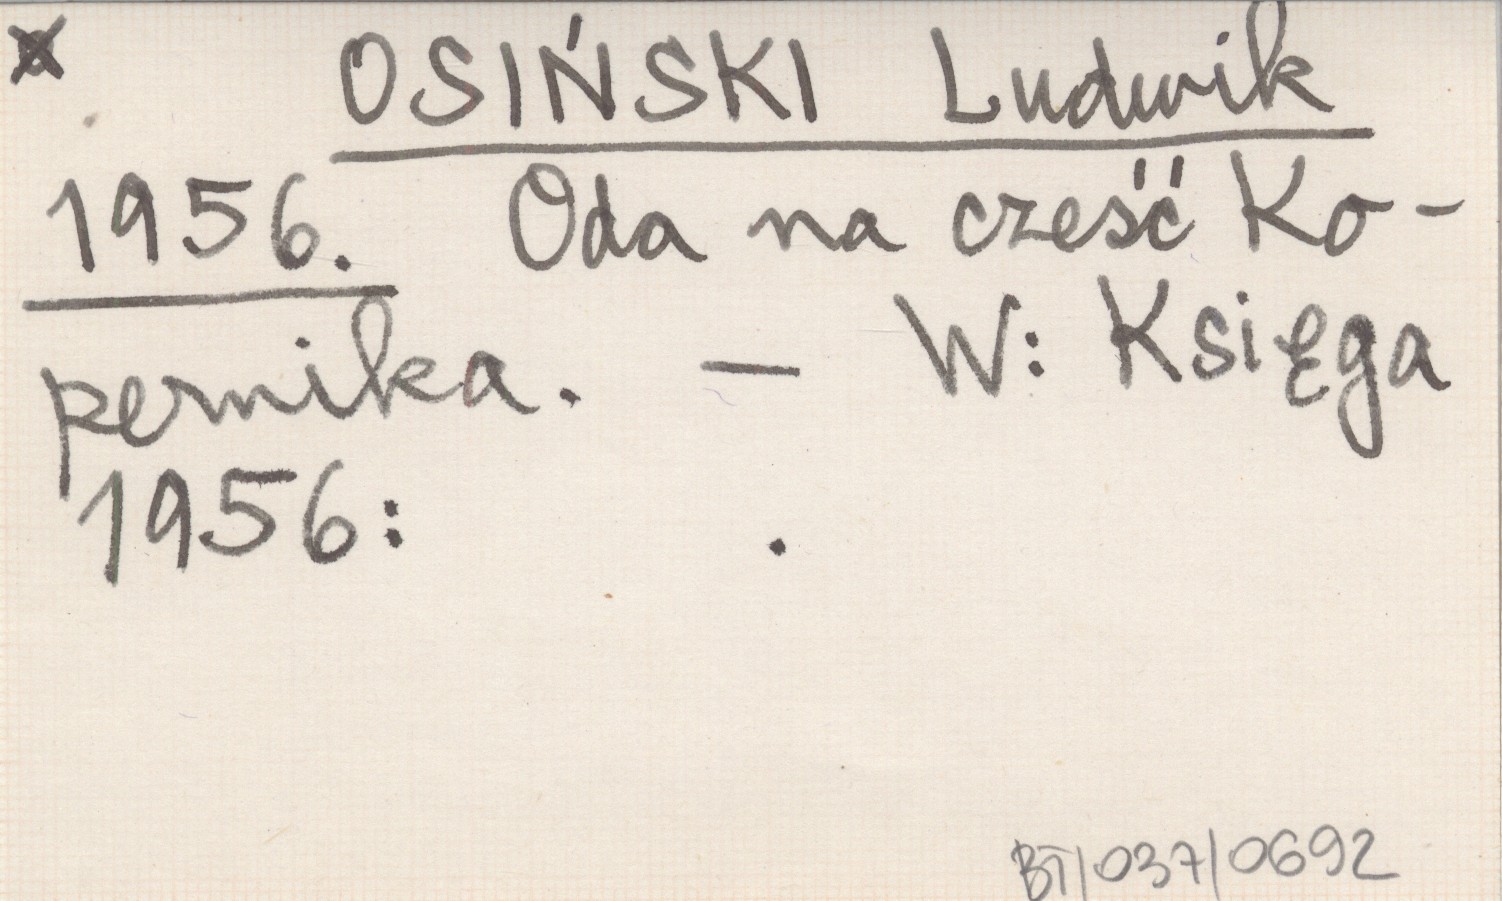 x OSIŃSKI Ludwik
1956. Oda na cześć Ko-
pernika. — W: Księga
1956: .
BT/037/0692